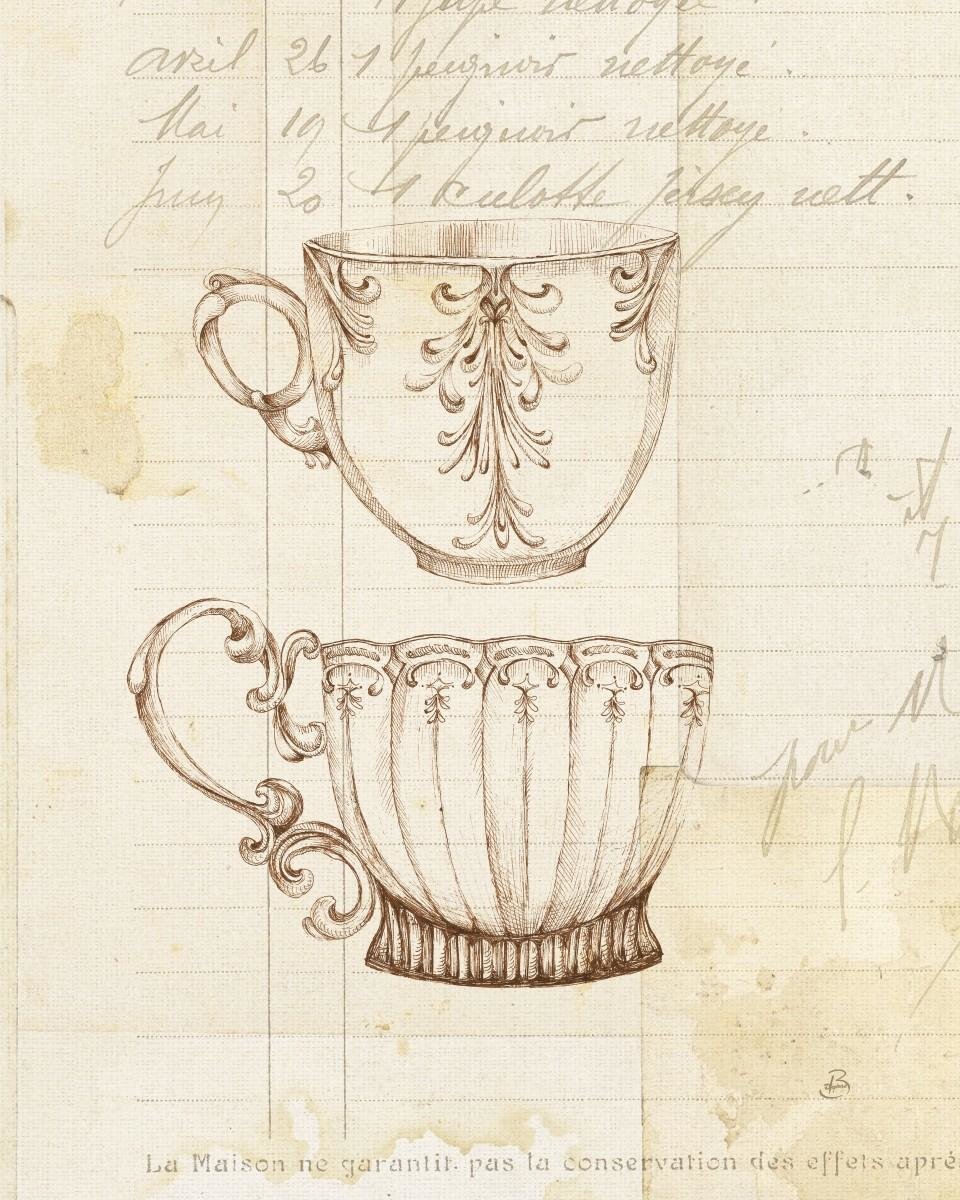 1 jupe nettoyée.
avril 26 1 peignoir nettoyé.
Mai 19 1 peignoir nettoyé.
Juny 20 1 culotte jersey nett.
pour
La Maison ne garantit pas la conservation des effets apré